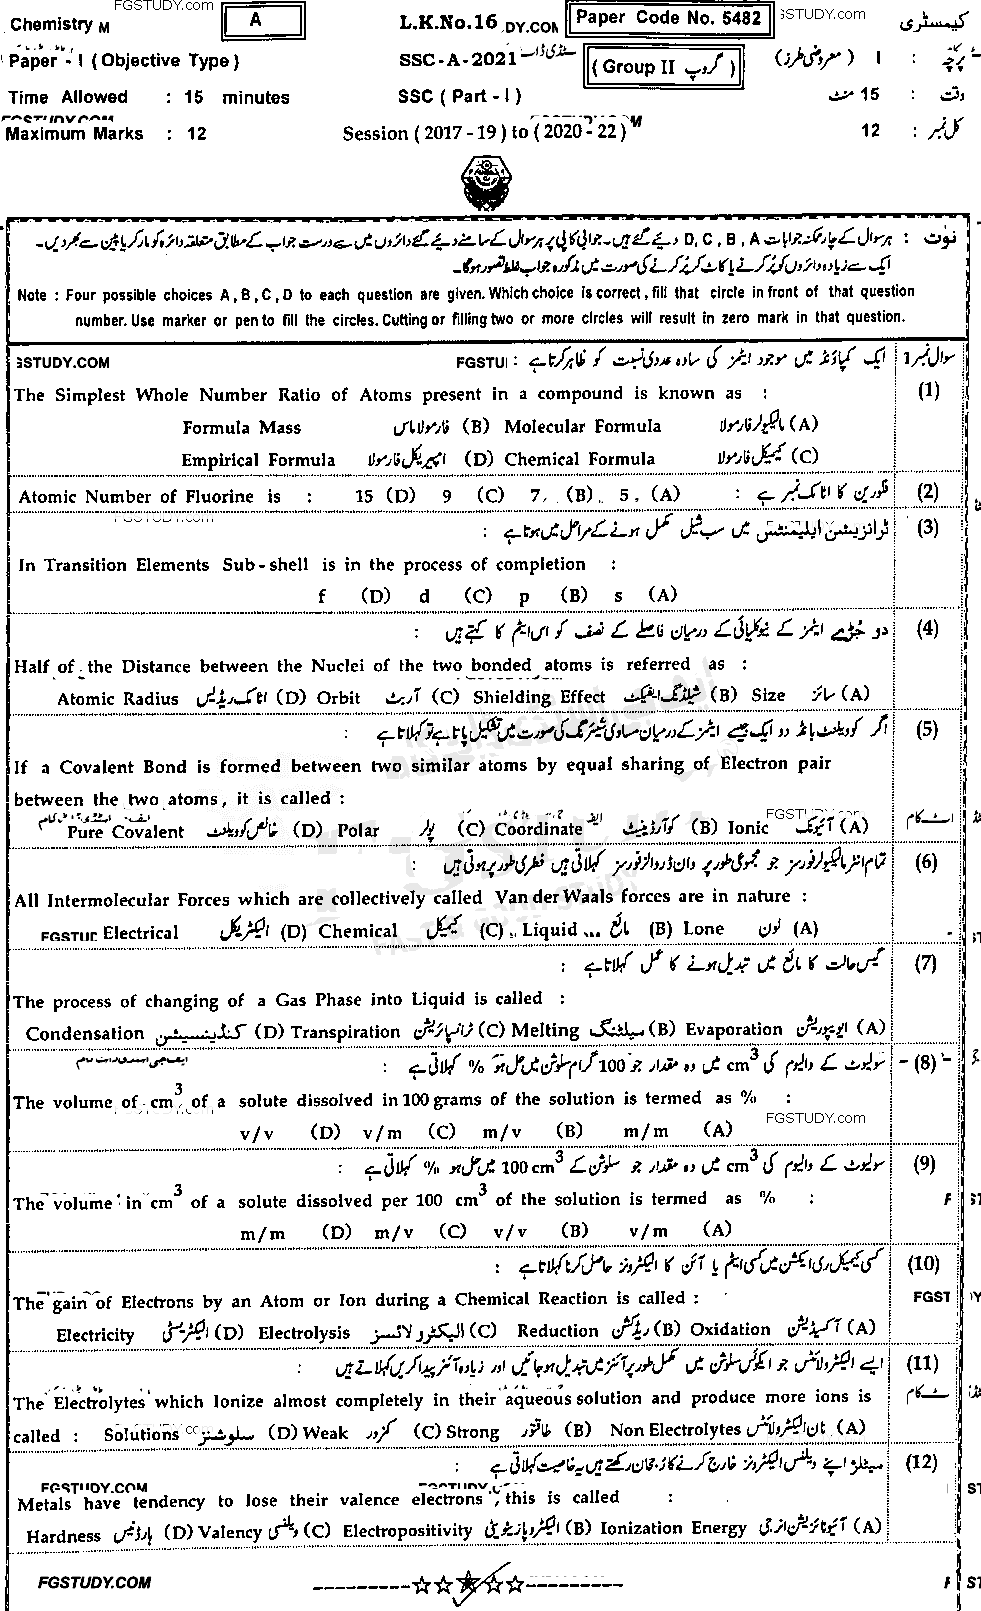 FGSTUDY.COM
Chemistry M
A
L.K.No.16 DY.COM
Paper Code No. 5482
GSTUDY.com
کیمسٹری
Paper - I (Objective Type)
SSC-A-2021
سٹڈی ڈاٹ
(Group II گروپ)
I (معروضی طرز)
پرچہ :
Time Allowed : 15 minutes
SSC (Part - I)
15 منٹ
وقت :
Maximum Marks : 12
Session (2017 - 19) to (2020 - 22) M
12
کل نمبر :
نوٹ : ہر سوال کے چار ممکنہ جوابات D, C, B, A دیئے گئے ہیں۔ جوابی کاپی پر ہر سوال کے سامنے دیئے گئے دائروں میں سے درست جواب کے مطابق متعلقہ دائرہ کو مارکر یا پین سے بھر دیں۔
ایک سے زیادہ دائروں کو پُر کرنے یا کاٹ کر پُر کرنے کی صورت میں مذکورہ جواب غلط تصور ہوگا۔
Note : Four possible choices A , B , C , D to each question are given. Which choice is correct , fill that circle in front of that question
number. Use marker or pen to fill the circles. Cutting or filling two or more circles will result in zero mark in that question.
GSTUDY.COM
FGSTU
سوال نمبر 1 ایک کمپاؤنڈ میں موجود ایٹمز کی سادہ عددی نسبت کو ظاہر کرتا ہے :
The Simplest Whole Number Ratio of Atoms present in a compound is known as : (1)
Formula Mass فارمولا ماس (B) Molecular Formula مالیکیولر فارمولا (A)
Empirical Formula امپیریکل فارمولا (D) Chemical Formula کیمیکل فارمولا (C)
Atomic Number of Fluorine is : 15 (D) 9 (C) 7 (B) 5 (A) فلورین کا اٹامک نمبر ہے : (2)
FGSTUDY.com
ٹرانزیشن ایلیمنٹس میں سب شیل مکمل ہونے کے مراحل میں ہوتا ہے : (3)
In Transition Elements Sub-shell is in the process of completion :
f (D) d (C) p (B) s (A)
دو جڑے ایٹمز کے نیوکلیائی کے درمیان فاصلے کے نصف کو اس ایٹم کا کہتے ہیں : (4)
Half of the Distance between the Nuclei of the two bonded atoms is referred as :
Atomic Radius اٹامک ریڈیس (D) Orbit آربٹ (C) Shielding Effect شیلڈنگ ایفیکٹ (B) Size سائز (A)
اگر کوویلنٹ بانڈ دو ایک جیسے ایٹمز کے درمیان مساوی شیئرنگ کی صورت میں تشکیل پاتا ہے تو کہلاتا ہے : (5)
If a Covalent Bond is formed between two similar atoms by equal sharing of Electron pair
between the two atoms, it is called :
Pure Covalent خالص کوویلنٹ (D) Polar پولر (C) Coordinate کوآرڈینیٹ (B) Ionic آئیونک (A)
تمام انٹر مالیکیولر فورسز جو مجموعی طور پر وان ڈر والز فورسز کہلاتی ہیں فطری طور پر ہوتی ہیں : (6)
All Intermolecular Forces which are collectively called Van der Waals forces are in nature :
FGSTUD Electrical الیکٹریکل (D) Chemical کیمیکل (C) Liquid مائع (B) Lone لون (A)
گیس حالت کا مائع میں تبدیل ہونے کا عمل کہلاتا ہے : (7)
The process of changing of a Gas Phase into Liquid is called :
Condensation کنڈینسیشن (D) Transpiration ٹرانسپائریشن (C) Melting میلٹنگ (B) Evaporation ایویپوریشن (A)
سولیوٹ کے والیوم کی cm3 میں وہ مقدار جو 100 گرام سلوشن میں حل ہو % کہلاتی ہے : (8)
The volume of cm3 of a solute dissolved in 100 grams of the solution is termed as % :
FGSTUDY.com
v/v (D) v/m (C) m/v (B) m/m (A)
سولیوٹ کے والیوم کی cm3 میں وہ مقدار جو سلوشن کے 100 cm3 میں حل ہو % کہلاتی ہے : (9)
The volume in cm3 of a solute dissolved per 100 cm3 of the solution is termed as % :
m/m (D) m/v (C) v/v (B) v/m (A)
کسی کیمیکل ری ایکشن میں کسی ایٹم یا آئن کا الیکٹرونز حاصل کرنا کہلاتا ہے : (10)
The gain of Electrons by an Atom or Ion during a Chemical Reaction is called :
FGST
Electricity الیکٹریسٹی (D) Electrolysis الیکٹرولائسز (C) Reduction ریڈکشن (B) Oxidation آکسیڈیشن (A)
ایسے الیکٹرولائٹس جو ایکوئس سلوشن میں مکمل طور پر آئنز میں تبدیل ہو جائیں اور زیادہ آئنز پیدا کریں کہلاتے ہیں : (11)
The Electrolytes which Ionize almost completely in their aqueous solution and produce more ions is
called : Solutions سلوشنز (D) Weak کمزور (C) Strong طاقتور (B) Non Electrolytes نان الیکٹرولائٹس (A)
میٹلز اپنے ویلنس الیکٹرونز خارج کرنے کا رجحان رکھتے ہیں یہ خاصیت کہلاتی ہے : (12)
FGSTUDY.COM
Metals have tendency to lose their valence electrons, this is called :
Hardness ہارڈنیس (D) Valency ویلنسی (C) Electropositivity الیکٹروپازیٹویٹی (B) Ionization Energy آئیونائزیشن انرجی (A)
FGSTUDY.COM